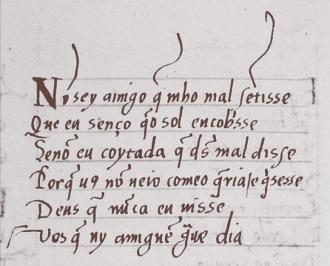 Nō sey amigo q̄ mho mal sētisse
Que eu senço q̄o sol encob̄sse
Senō eu coytada q̄ ds̄ maldisse
Porq̄ uꝯ nō ueio comeo q̄ria se q̄sesse
Deus q̄ nūca eu uisse
Uos q̄ ny dia